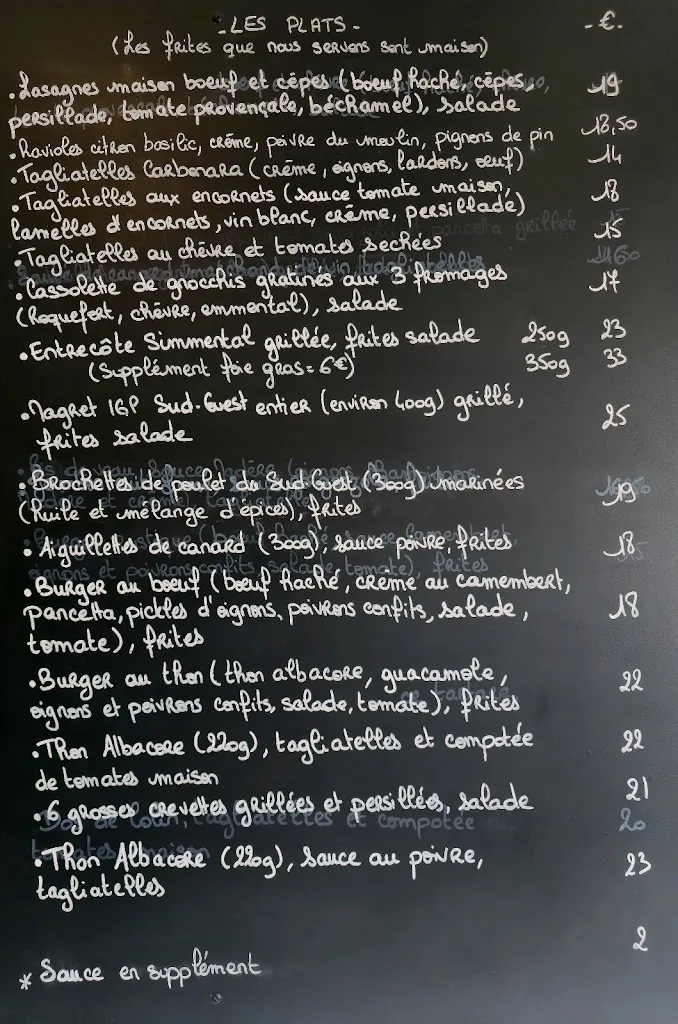 - LES PLATS - - €. -
(Les frites que nous servons sont maison)
• Lasagnes maison boeuf et cèpes (boeuf haché, cèpes, 19
persillade, tomate provençale, béchamel), salade
• Ravioles citron basilic, crème, poivre du moulin, pignons de pin 18,50
• Tagliatelles Carbonara (crème, oignons, lardons, oeuf) 14
• Tagliatelles aux encornets (sauce tomate maison, 18
lamelles d'encornets, vin blanc, crème, persillade)
• Tagliatelles au chèvre et tomates sechées 15
• Cassolette de gnocchis gratinés aux 3 fromages 17
(Roquefort, chèvre, emmental), salade
• Entrecôte Simmental grillée, frites salade 250g 23
(Supplément foie gras = 6€) 350g 33
• Magret IGP Sud-Ouest entier (environ 400g) grillé, 25
frites salade
• Brochettes de poulet du Sud Ouest (300g) marinées 19
(huile et mélange d'épices), frites
• Aiguillettes de canard (300g), sauce poivre, frites 18
• Burger au boeuf (boeuf haché, crème au camembert,
pancetta, pickles d'oignons, poivrons confits, salade, 18
tomate), frites
• Burger au thon (thon albacore, guacamole, 22
oignons et poivrons confits, salade, tomate), frites
• Thon Albacore (220g), tagliatelles et compotée 22
de tomates maison
• 6 grosses crevettes grillées et persillées, salade 21
• Thon Albacore (220g), sauce au poivre, 23
tagliatelles
* Sauce en supplément 2